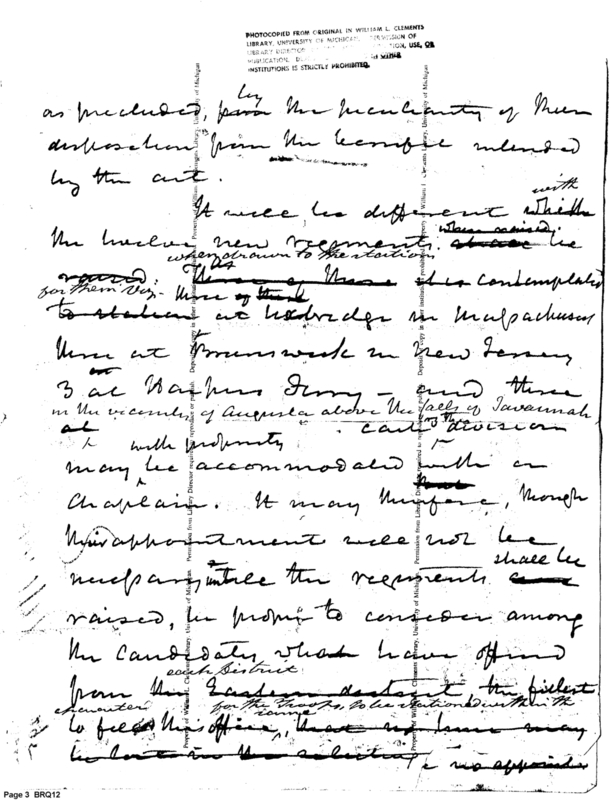 PHOTOCOPIED FROM ORIGINAL IN WILLIAM L. CLEMENTS
LIBRARY, UNIVERSITY OF MICHIGAN. PERMISSION OF
LIBRARY DIRECTOR USE, OR
PUBLICATION. OTHER
INSTITUTIONS IS STRICTLY PROHIBITED.
as precluded, by the peculiarity of their
disposition from the benefit intended
by the act.
with
It will be different
when raised
the twelve new regiments be
when drawn to the stations
raised. Three of these it is contemplated
for them viz. three of them
to station at Uxbridge in Massachusetts
three at Brunswick in New Jersey
3 at Harpers Ferry - and three
in the vicinity of Augusta above the falls of Savannah
at each division
with propriety
may be accommodated with a
Chaplain. It may therefore, though
their appointment will not be
shall be
necessary untill the regiments are
raised, be proper to consider among
the candidates what have offered
each District
from the Eastern district, the fittest
character for the troops to be stationed within the
same
to fill this office, that no time may
be lost in the selecting
Page 3 BRQ12